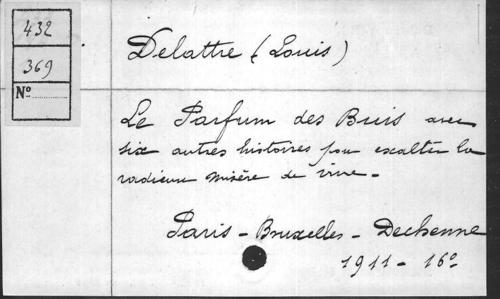 432
369
No
Delattre (Louis)
Le Parfum des Buis avec
six autres histoires pour exalter la
radieuse misère de vivre -
Paris - Bruxelles - Dechenne
1911 - 16o